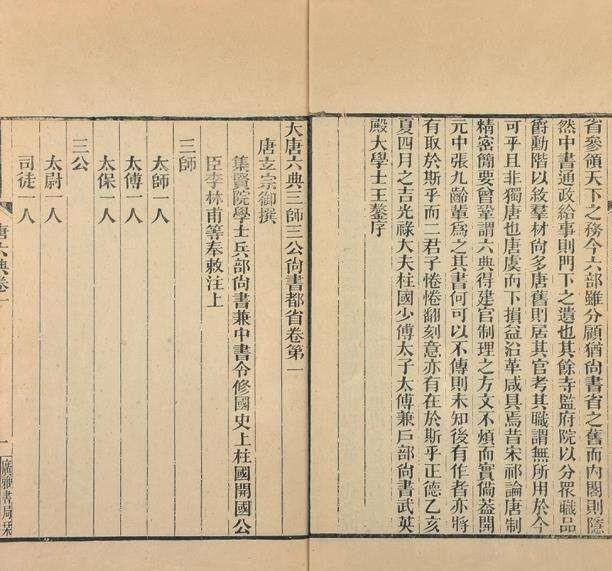 省參領天下之務今六部雖分顧猶尚書省之舊而內閣則隱
然中書通政給事則門下之遺也其餘寺監府院以分衆職品
爵勳階以敘羣材尚多唐舊則居其官考其職謂無所用於今
可乎且非獨唐也唐虞而下損益沿革咸具焉昔宋祁論唐制
精密簡要曾鞏謂六典得建官制理之方文不煩而實備葢開
元中張九齡輩爲之其書何可以不傳則未知後有作者亦將
有取於斯乎而二君子惓惓翻刻意亦有在於斯乎正德乙亥
夏四月之吉光祿大夫柱國少傅太子太傅兼戶部尚書武英
殿大學士王鏊序
大唐六典三師三公尚書都省卷第一
唐玄宗御撰
集賢院學士兵部尚書兼中書令修國史上柱國開國公
臣李林甫等奉敕注上
三師
太師一人
太傅一人
太保一人
三公
太尉一人
司徒一人
唐六典卷一
一
廣雅書局栞